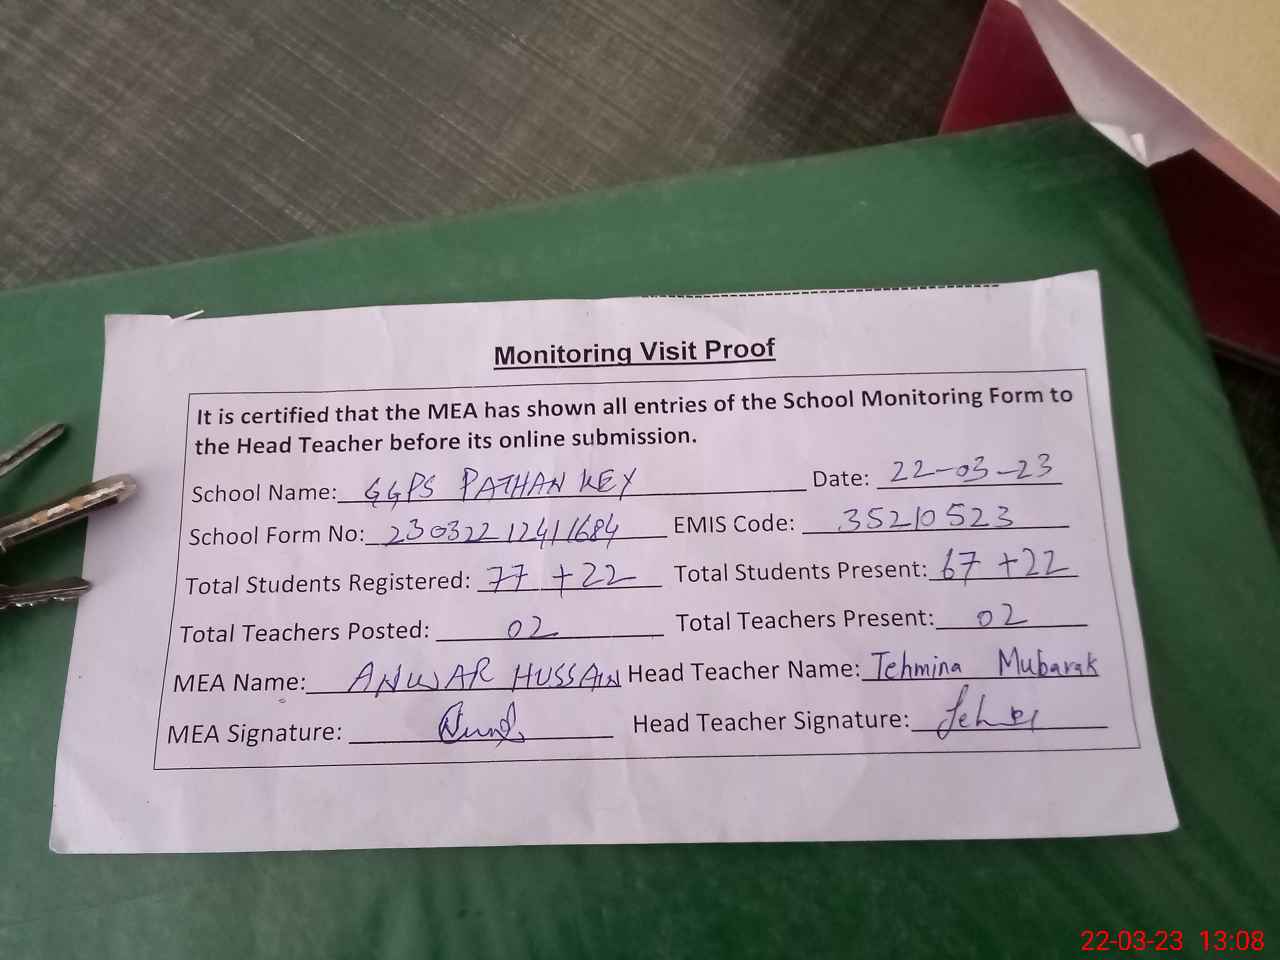 Monitoring Visit Proof
It is certified that the MEA has shown all entries of the School Monitoring Form to
the Head Teacher before its online submission.
School Name: GGPS PATHAN KEY Date: 22-03-23
School Form No: 23032212411684 EMIS Code: 35210523
Total Students Registered: 77 +22 Total Students Present: 67 +22
Total Teachers Posted: 02 Total Teachers Present: 02
MEA Name: ANWAR HUSSAIN Head Teacher Name: Tehmina Mubarak
MEA Signature: Head Teacher Signature:
22-03-23 13:08